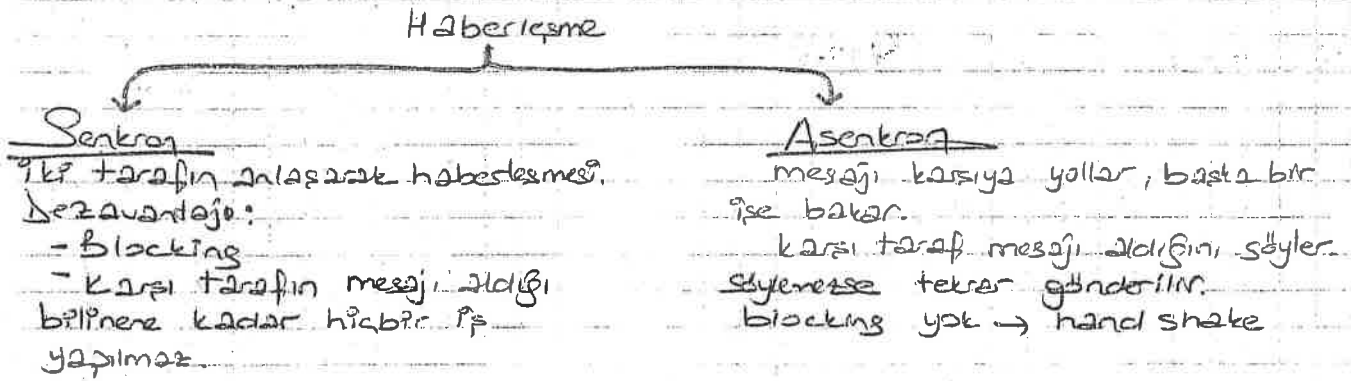 Haberleşme
Senkron
İki tarafın anlaşarak haberleşmesi.
Dezavantajı:
- Blocking
- Karşı tarafın mesajı aldığı
bilinene kadar hiçbir iş
yapılmaz.
Asenkron
mesajı karşıya yollar, başka bir
işe bakar.
karşı taraf mesajı aldığını söyler.
söylemezse tekrar gönderilir.
blocking yok → hand shake